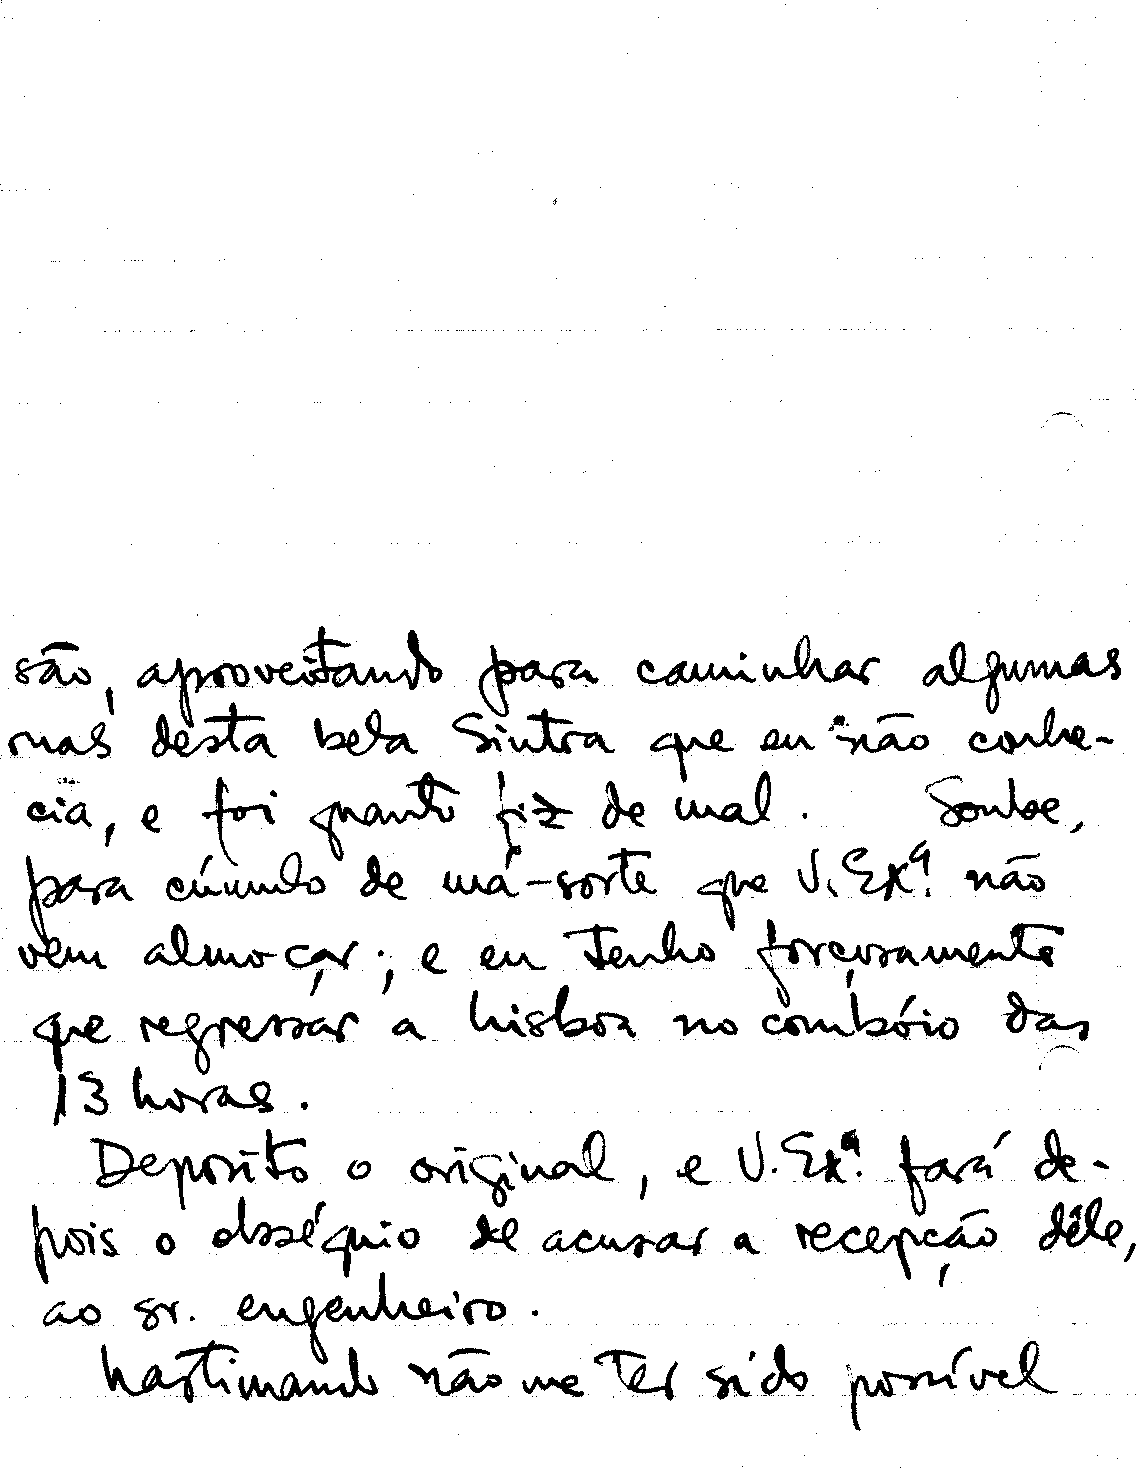 são, aproveitando para caminhar algumas
ruas desta bela Sintra que eu não conhe-
cia, e foi quanto fiz de mal. Soube,
para cúmulo de má-sorte que V. Exª. não
vem almoçar; e eu tenho forçosamente
que regressar a Lisboa no combóio das
13 horas.
Deposito o original, e V. Exª. fará de-
pois o obséquio de acusar a recepção dêle,
ao sr. engenheiro.
Lastimando não me ter sido possível